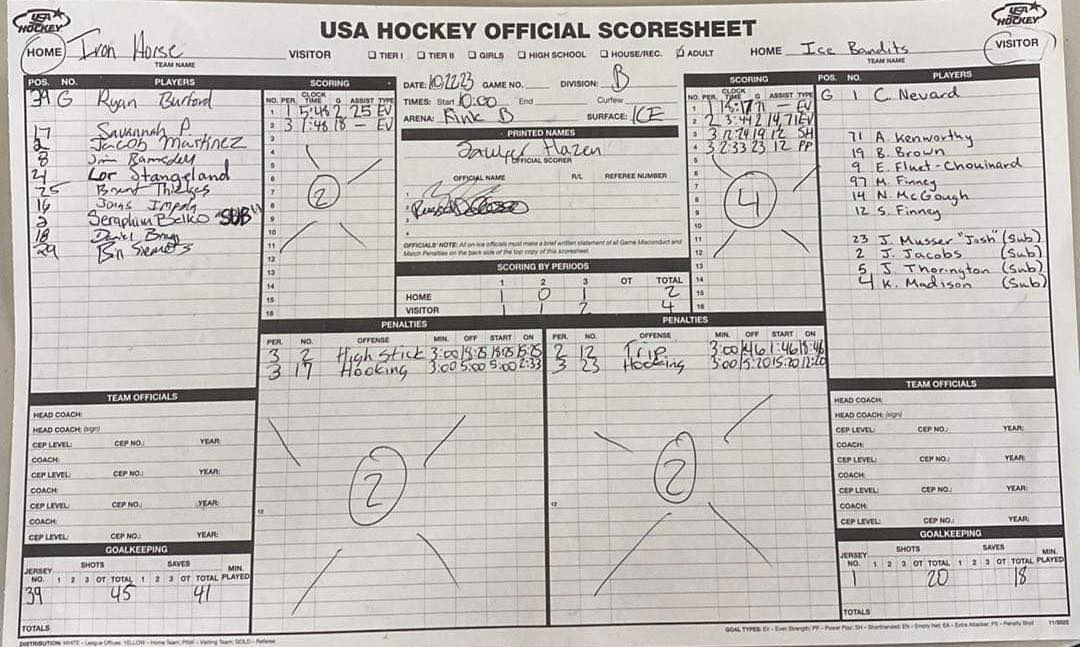 USA HOCKEY
USA HOCKEY OFFICIAL SCORESHEET
USA HOCKEY
HOME Iron Horse
TEAM NAME
VISITOR ☐ TIER I ☐ TIER II ☐ GIRLS ☐ HIGH SCHOOL ☐ HOUSE/REC. ☑ ADULT
HOME Ice Bandits VISITOR
TEAM NAME
POS. NO. PLAYERS
39 G Ryan Burford
17 Savannah P.
2 Jacob Martinez
8 Jim Ramsdell
21 Lor Stangeland
25 Brent Thielges
16 Jonas
2 Seraphim Belko "SUB"
18 Daniel
29
SCORING
NO. PER. CLOCK TIME G ASSIST TYPE
1 1 5:48 2 25 EV
2 3 1:48 18 – EV
3
4
5
6
7
8
9
10
11
12
13
14
15
16
2
DATE: 10.22.23 GAME NO. DIVISION: B
TIMES: Start 10:00 End Curfew
ARENA: Rink B SURFACE: ICE
PRINTED NAMES
Sawyer Hazen
OFFICIAL SCORER
OFFICIAL NAME R/L REFEREE NUMBER
OFFICIALS' NOTE: All on-ice officials must make a brief written statement of all Game Misconduct and
Match Penalties on the back side of the top copy of this scoresheet.
SCORING BY PERIODS
1 2 3 OT TOTAL
HOME 1 0 1 2
VISITOR 1 1 2 4
SCORING
NO. PER. CLOCK TIME G ASSIST TYPE
1 1 8:17 71 – EV
2 2 3:44 2 14,71 EV
3 3 12:24 19 12 SH
4 3 2:33 23 12 PP
5
6
7
8
9
10
11
12
13
14
15
16
4
POS. NO. PLAYERS
G 1 C. Nevard
71 A. Kenworthy
19 B. Brown
9 E. Fluet-Chouinard
97 M. Finney
14 N. McGough
12 S. Finney
23 J. Musser "Josh" (Sub)
2 J. Jacobs (Sub)
5 J. Thorington (Sub)
4 K. Madison (Sub)
PENALTIES
PER. NO. OFFENSE MIN. OFF START ON
3 2 High Stick 3:00 18:25 18:25 15:25
3 17 Hooking 3:00 5:00 5:00 2:33
12
2
PENALTIES
PER. NO. OFFENSE MIN. OFF START ON
2 12 Trip 3:00 1:46 1:46 18:46
3 23 Hooking 3:00 15:20 15:20 12:20
12
2
TEAM OFFICIALS
HEAD COACH:
HEAD COACH: (sign)
CEP LEVEL: CEP NO.: YEAR:
COACH:
CEP LEVEL: CEP NO.: YEAR:
COACH:
CEP LEVEL: CEP NO.: YEAR:
COACH:
CEP LEVEL: CEP NO.: YEAR:
GOALKEEPING
SHOTS SAVES
JERSEY NO. 1 2 3 OT TOTAL 1 2 3 OT TOTAL MIN. PLAYED
39 45 41
TOTALS
TEAM OFFICIALS
HEAD COACH:
HEAD COACH: (sign)
CEP LEVEL: CEP NO.: YEAR:
COACH:
CEP LEVEL: CEP NO.: YEAR:
COACH:
CEP LEVEL: CEP NO.: YEAR:
COACH:
CEP LEVEL: CEP NO.: YEAR:
GOALKEEPING
SHOTS SAVES
JERSEY NO. 1 2 3 OT TOTAL 1 2 3 OT TOTAL MIN. PLAYED
1 20 18
TOTALS
DISTRIBUTION: WHITE – League Offices; YELLOW – Home Team; PINK – Visiting Team; GOLD – Referee
GOAL TYPES: EV – Even Strength; PP – Power Play; SH – Shorthanded; EN – Empty Net; EA – Extra Attacker; PS – Penalty Shot 11/2022